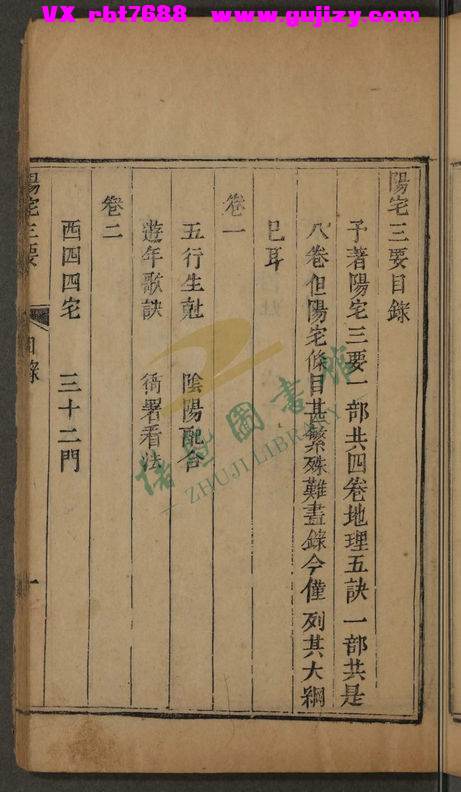 VX rbt7688 www.gujizy.com
陽宅三要目錄
予著陽宅三要一部共四卷地理五訣一部共是
八卷但陽宅條目甚繁殊難盡錄今僅列其大綱
已耳
卷一
五行生尅 陰陽配合
遊年歌訣 衙署看法
卷二
西四四宅 三十二門
陽宅三要 目錄 一
諸暨圖書館
ZHUJI LIBRARY